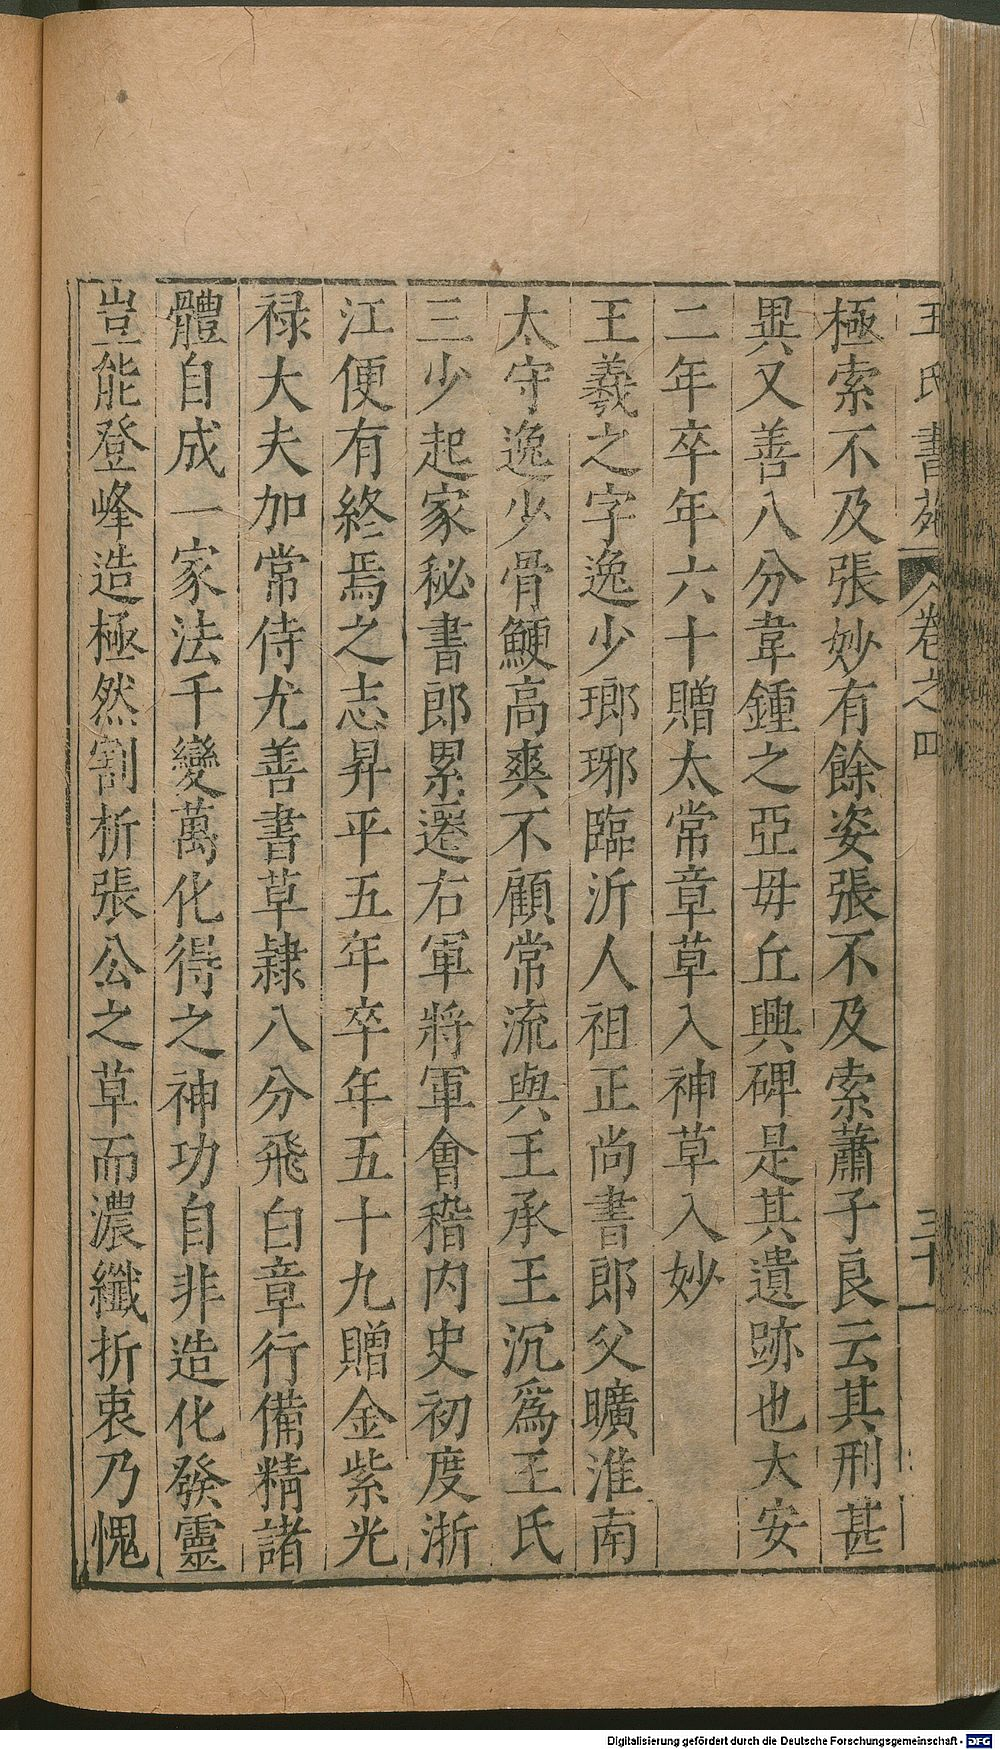 王氏書苑 卷之四 三十
極索不及張妙有餘姿張不及索蕭子良云其刑甚
異又善八分韋鍾之亞毋丘興碑是其遺跡也大安
二年卒年六十贈太常章草入神草入妙
王羲之字逸少瑯琊臨沂人祖正尚書郎父曠淮南
太守逸少骨鯁高爽不顧常流與王承王沉爲王氏
三少起家秘書郎累遷右軍將軍會稽内史初度浙
江便有終焉之志昇平五年卒年五十九贈金紫光
禄大夫加常侍尤善書草隸八分飛白章行備精諸
體自成一家法千變萬化得之神功自非造化發靈
豈能登峰造極然割析張公之草而濃纖折衷乃愧
Digitalisierung gefördert durch die Deutsche Forschungsgemeinschaft - DFG